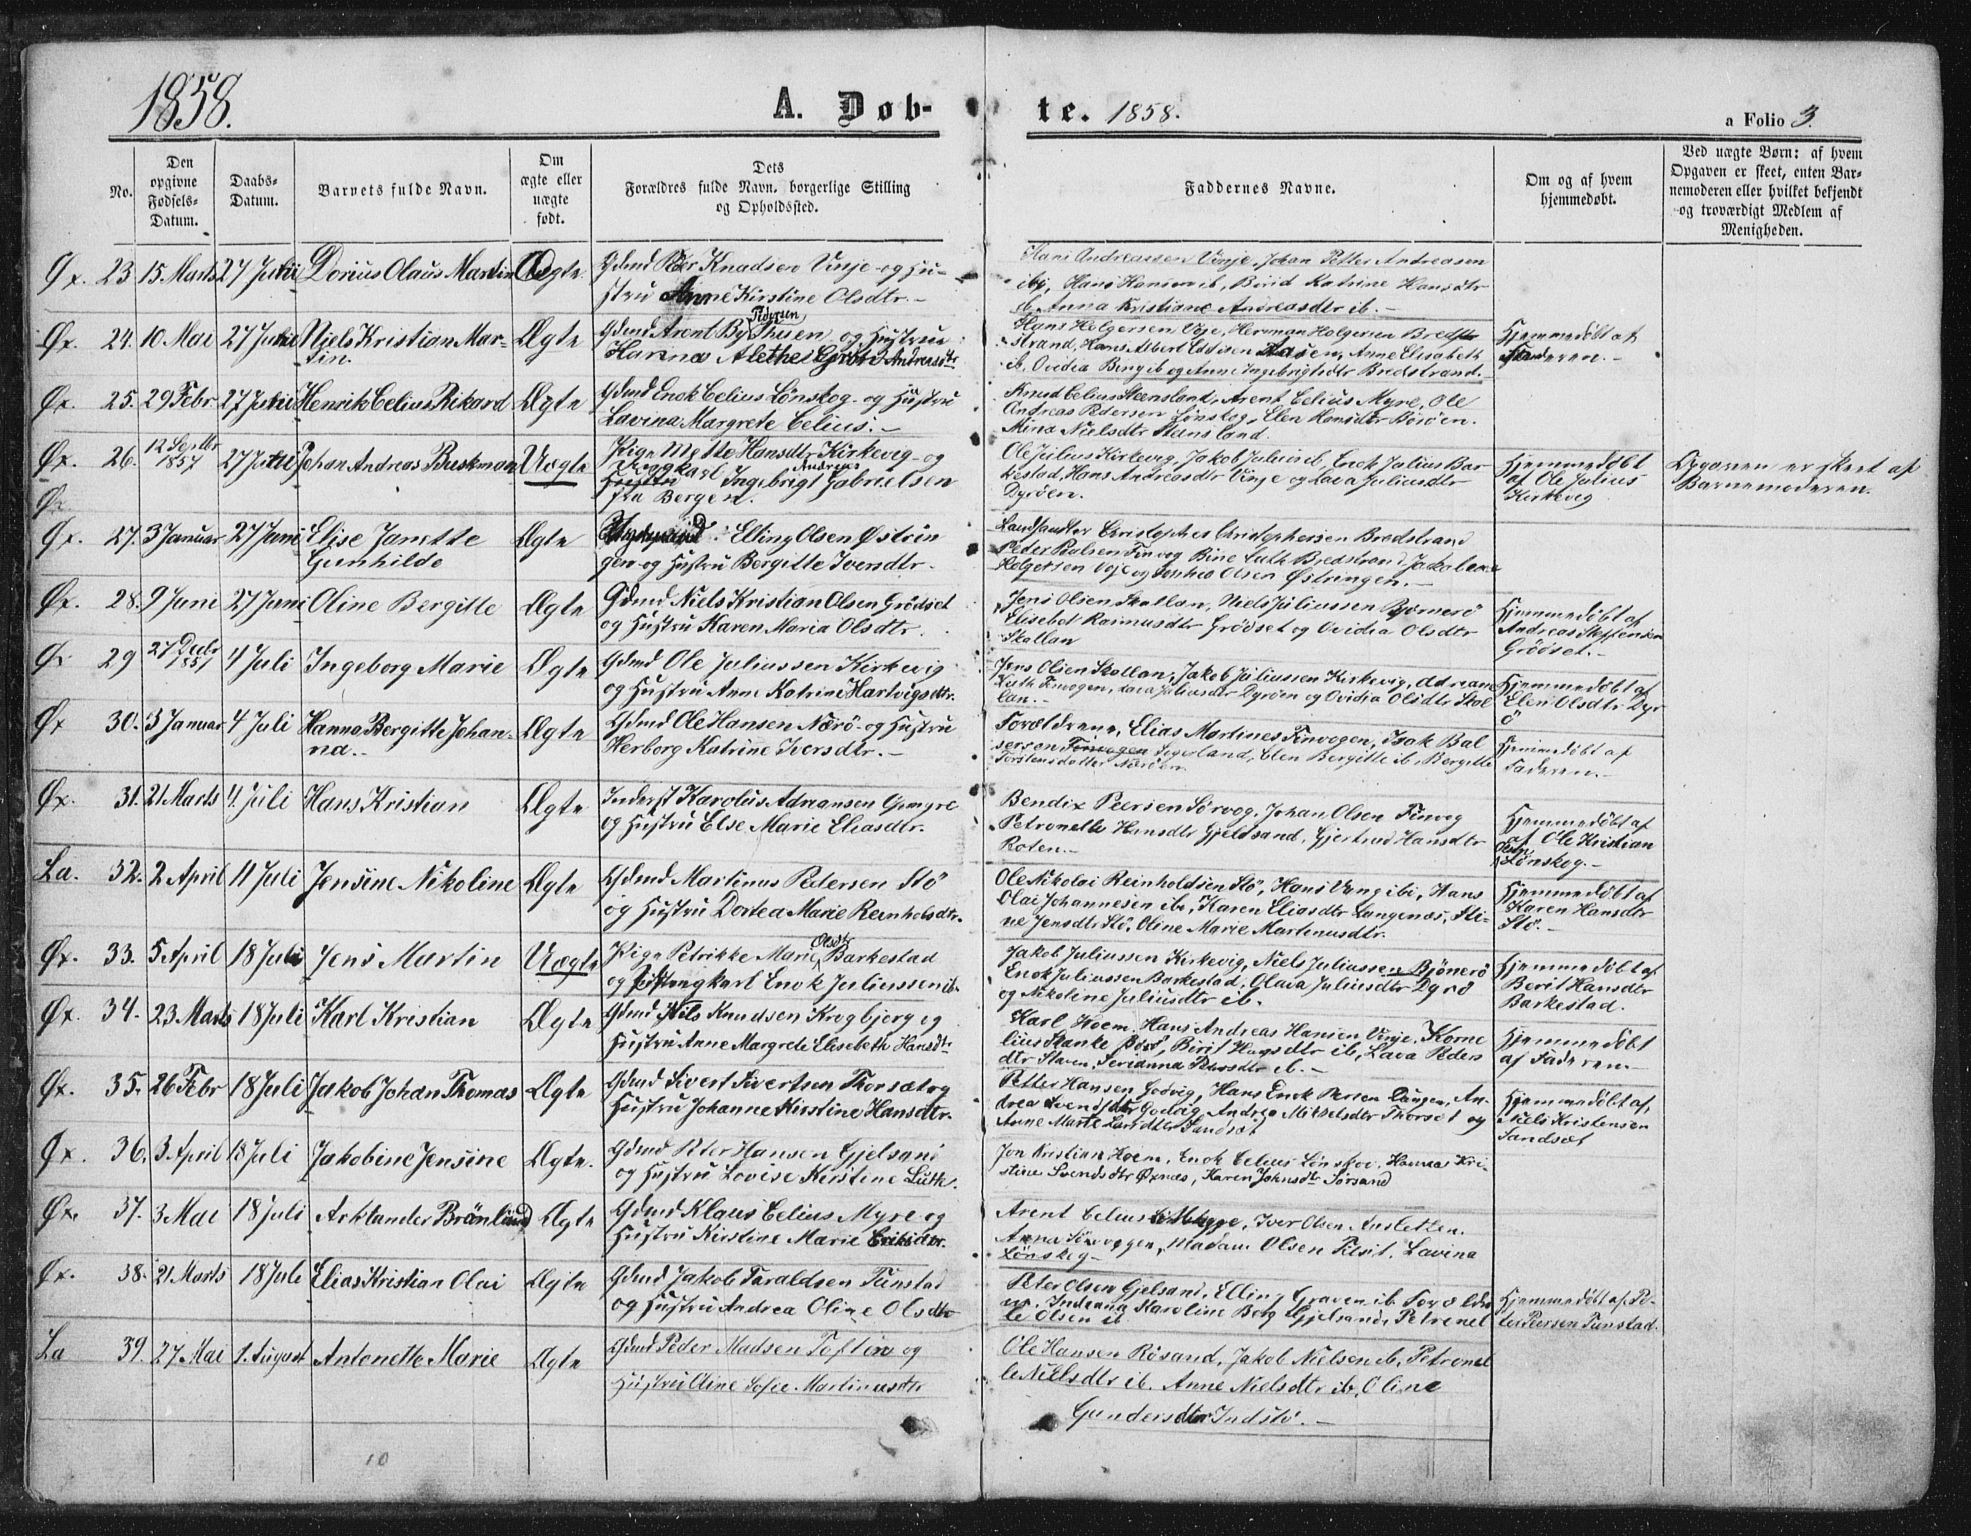 1858.
A. Døb-
te. 1858.
a Folio 3.
No.
Den
opgivne
Fødsels-
Datum.
Daabs-
Datum.
Barnets fulde Navn.
Om
ægte eller
uægte
født.
Dets
Forældres fulde Navn, borgerlige Stilling
og Opholdssted.
Faddernes Navne.
Om og af hvem
hjemmedøbt.
Ved uægte Børn: af hvem
Opgaven er skeet, enten Bar-
nemoderen eller hvilket bekjendt
og troværdigt Medlem af
Menigheden.
Øx. 23. 15 Marts 27 Juni Dorius Olaus Martin Ægte
Gdmd Peder Knudsen Vinje og Hu-
stru Anne Kirstine Olsdtr.
Hans Andreassen Vinje, Johan Petter Andreasen
ibi, Hans Hansen ib, Berid Katrine Hansdtr
ib. Anna Kristiane Andreasdtr ib.
Øx. 24. 10 Mai 27 Juni Niels Kristian Mar-
tin.
Ægte
Gdmd Arent By Thuen og Hustru
Hanna Alethe Andreasdtr
Hans Holgersen Voje, Herman Holgersen Bred-
strand, Hans Albert Anne Elisabeth
ib, Ovidia Beng ib og Anne Ingebrigtsdtr Bredstrand.
Hjemmedøbt af
Faderen.
Øx. 25. 29 Febr 27 Juni Henrik Celius Rikard Ægte
Gdmd Enok Celius Lønskog og Hustru
Lavina Margrete Celius.
Knud Celius Steensland, Arent Celius Myre, Ole
Andreas Pedersen Lønskog, Elen Hansdtr
Mina Nielsdtr
Øx. 26. 12 Septbr
1857 27 Juni Johan Andreas Buskman Uægte
Pige Mette Hansdtr Kirkevig og
Ungkarl Ingebrigt Andreas Gabrielsen
fra Bergen.
Ole Julius Kirkevig, Jakob Julius ib, Enok Julius Bar-
kestad, Hans Andreasdtr Vinje og Lava Juliusdtr
Dyrøen.
Hjemmedøbt
af Ole Julius
Kirkevig
Opgaven er skeet af
Barnemoderen.
Øx.
Øx. 27. 3 Januar 27 Juni Elise Janette
Gunhilde
Ægte
Elling Olsen Østrin
gen og Hustru Bergitte Ivendtr.
Landhandler Christopher Christophersen Bredstrand
Peter Poulsen Finvog Bine Luth Bredstrand, Jakobine
Holgersen Voje og Olsen Østringen.
Øx. 28. 9 Juni 27 Juni Oline Bergitte Ægte
Gdmd Niels Kristian Olsen Grødset
og Hustru Karen Maria Olsdtr.
Jens Olsen Skallan, Niels Juliussen Bjørnerø
Elisebet Rasmusdtr Grødset og Ovidia Olsdtr
Skallan
Hjemmedøbt af
Andreas Steffensen
Grødset.
Øx 29 27 Decbr
1857 4 Juli Ingeborg Marie Ægte
Gdmd Ole Juliussen Kirkevig
og Hustru Anne Katrine Hartvigsdtr.
Jens Olsen Skallan, Jakob Juliussen Kirkevig, Adriane
Luth Finvogen, Lava Juliusdtr Dyrøen og Ovidia Olsdtr Skal
lan.
Hjemmedøbt af
Elen Olsdtr Dyr
ø
Øx 30. 3 Januar 4 Juli Hanna Bergitte Johan-
na.
Ægte
Gdmd Ole Hansen Nærø og Hustru
Herborg Katrine Iversdtr.
Forældrene, Elias Martines Finvogen, Isak Bal
sersen Finvogen Sigerland, Elen Bergitte ib, Bergitte
Torstensdatter Nærøen
Hjemmedøbt af
Faderen.
Øx. 31. 21 Marts 4 Juli Hans Kristian Ægte
Inderst Karolus Adriansen
og Hustru Else Marie Eliasdtr.
Bendix Peersen Sørvog, Johan Olsen Finvog
Petronelle Hansdtr Gjeldsand, Gjertrud Hansdtr
Roten.
Hjemmedøbt af
af Ole Kristian
Peder
Lønskog.
La. 32. 2 April 11 Juli Jensine Nikoline Ægte
Gdmd Martinus Petersen Stø
og Hustru Dortea Marie Reinholdsdtr.
Ole Nikolai Reinholdsen Stø, Hans Vang ibi, Hans
Olai Johannesen ib, Karen Eliasdtr Langenæs, Sti-
ne Jensdtr Stø, Oline Marie Martinusdtr.
Hjemmedøbt af
Karen Hansdtr
Stø.
Øx. 33. 5 April 18 Juli Jens Martin Uægte
Pige Petrikke Marie Olsdtr Barkestad
og Ungkarl Enok Juliussen ib.
Jakob Juliussen Kirkevig, Niels Juliussen Bjönerö
Enok Juliussen Barkestad, Olava Juliusdtr Dyrø
og Nikoline Juliusdtr ib.
Hjemmedøbt af
Berit Hansdtr
Barkestad.
Øx. 34. 23 Marts 18 Juli Karl Kristian Ægte
Gdmd Nils Knudsen Krogbjerg og
Hustru Anne Margrete Elisebeth Hansdtr
Karl Hoem, Hans Andreas Hansen Vinje, Korne
lius Hanke Børø, Birit Hansdtr ib, Lava Peders
dtr Staven, Serianna Pedersdtr ib.
Hjemmedøbt
af Faderen.
Øx. 35. 26 Febr 18 Juli Jakob Johan Thomas Ægte
Gdmd Sivert Sivertsen Thorsæt og
Hustru Johanne Kirstine Hansdtr.
Petter Hansen Godvig, Hans Enok Persen An-
drea Svendsdtr Godvig, Andrea Mikkelsdtr Thorset og
Anne Marte Larsdtr Sandsæt
Hjemmedøbt af
Niels Kristensen
Sandsæt
Øx. 36. 3 April 18 Juli Jakobine Jensine Ægte.
Gdmd Peter Hansen Gjelsand
og Hustru Lovise Kirstine Luth.
Jon Kristian Hoem, Enok Celius Lønskov, Hannas Kri-
stine Svendsdtr Øxnæs, Karen Johnsdtr Sørsand
Øx. 37. 3 Mai 18 Juli Arklander Brönlund Ægte
Gdmd Klaus Celius Myre og
Hustru Kirstine Marie Eriksdtr.
Arent Celius Iver Olsen Ansletten.
Anna Sørvogen, Madam Olsen Tilsit, Lavina
Lönskog
Øx. 38. 21 Marts 18 Juli Elias Kristian Olai Ægte
Gdmd Jakob Taraldsen Tunstad
og Hustru Andrea Oline Olsdtr
Peter Olsen Gjelsand, Elling Graven ib Forældre
ne, Indeana Karoline Borg Gjelsand, Petronel
le Olsen ib
Hjemmedøbt af Pe-
ter Persen Tunstad.
La 39. 27 Mai 1. August Antonette Marie Ægte
Gdmd Peder Madsen Toften og
Hustru Oline Sofie Martinusdtr
Ole Hansen Røsand, Jakob Nielsen ib, Petronel
le Nielsdtr ib. Anne Nielsdtr ib, Oline
Gundersdtr Indstø.
10